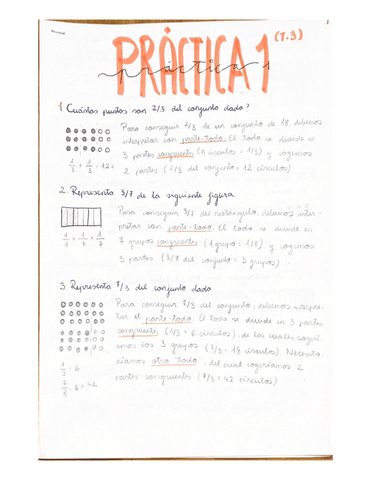 PRÁCTICA 1 (T.3)
práctica 1
1. Cuántos puntos son 2/3 del conjunto dado?
Para conseguir 2/3 de un conjunto de 18 debemos
interpretar con parte-todo. El todo se divide en
3 partes congruentes (6 círculos = 1/3) y cogemos
2 partes (2/3 del conjunto = 12 círculos)
1/3 + 1/3 = 12
2. Representa 3/7 de la siguiente figura
Para conseguir 3/7 del rectángulo, debemos inter-
pretar con parte-todo. El todo se divide en
7 grupos congruentes (1 grupo = 1/8) y cogemos
3 partes (3/7 del conjunto = 3 grupos).
1/7 + 1/7 + 1/7
3. Representa 7/3 del conjunto dado
Para conseguir 7/3 del conjunto, debemos interpre-
tar el parte-todo. El todo se divide en 3 partes
congruentes (1/3 = 6 círculos), de las cuales cogerí-
amos los 3 grupos (3/3 = 18 círculos). Necesita-
ríamos otro "todo" del cual cogeríamos 2
partes congruentes (7/3 = 42 círculos)
1/3 = 6
7/3 · 6 = 42